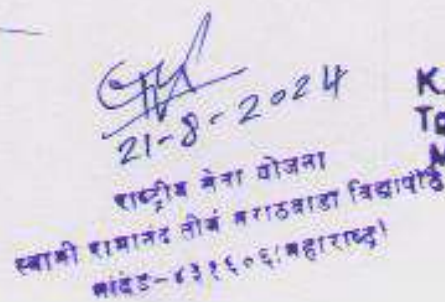 21-8-2024
राष्ट्रीय सेवा योजना
स्वामी रामानंद तीर्थ मराठवाडा विद्यापीठ
नांदेड-४३१६०६(महाराष्ट्र)
K
To
M